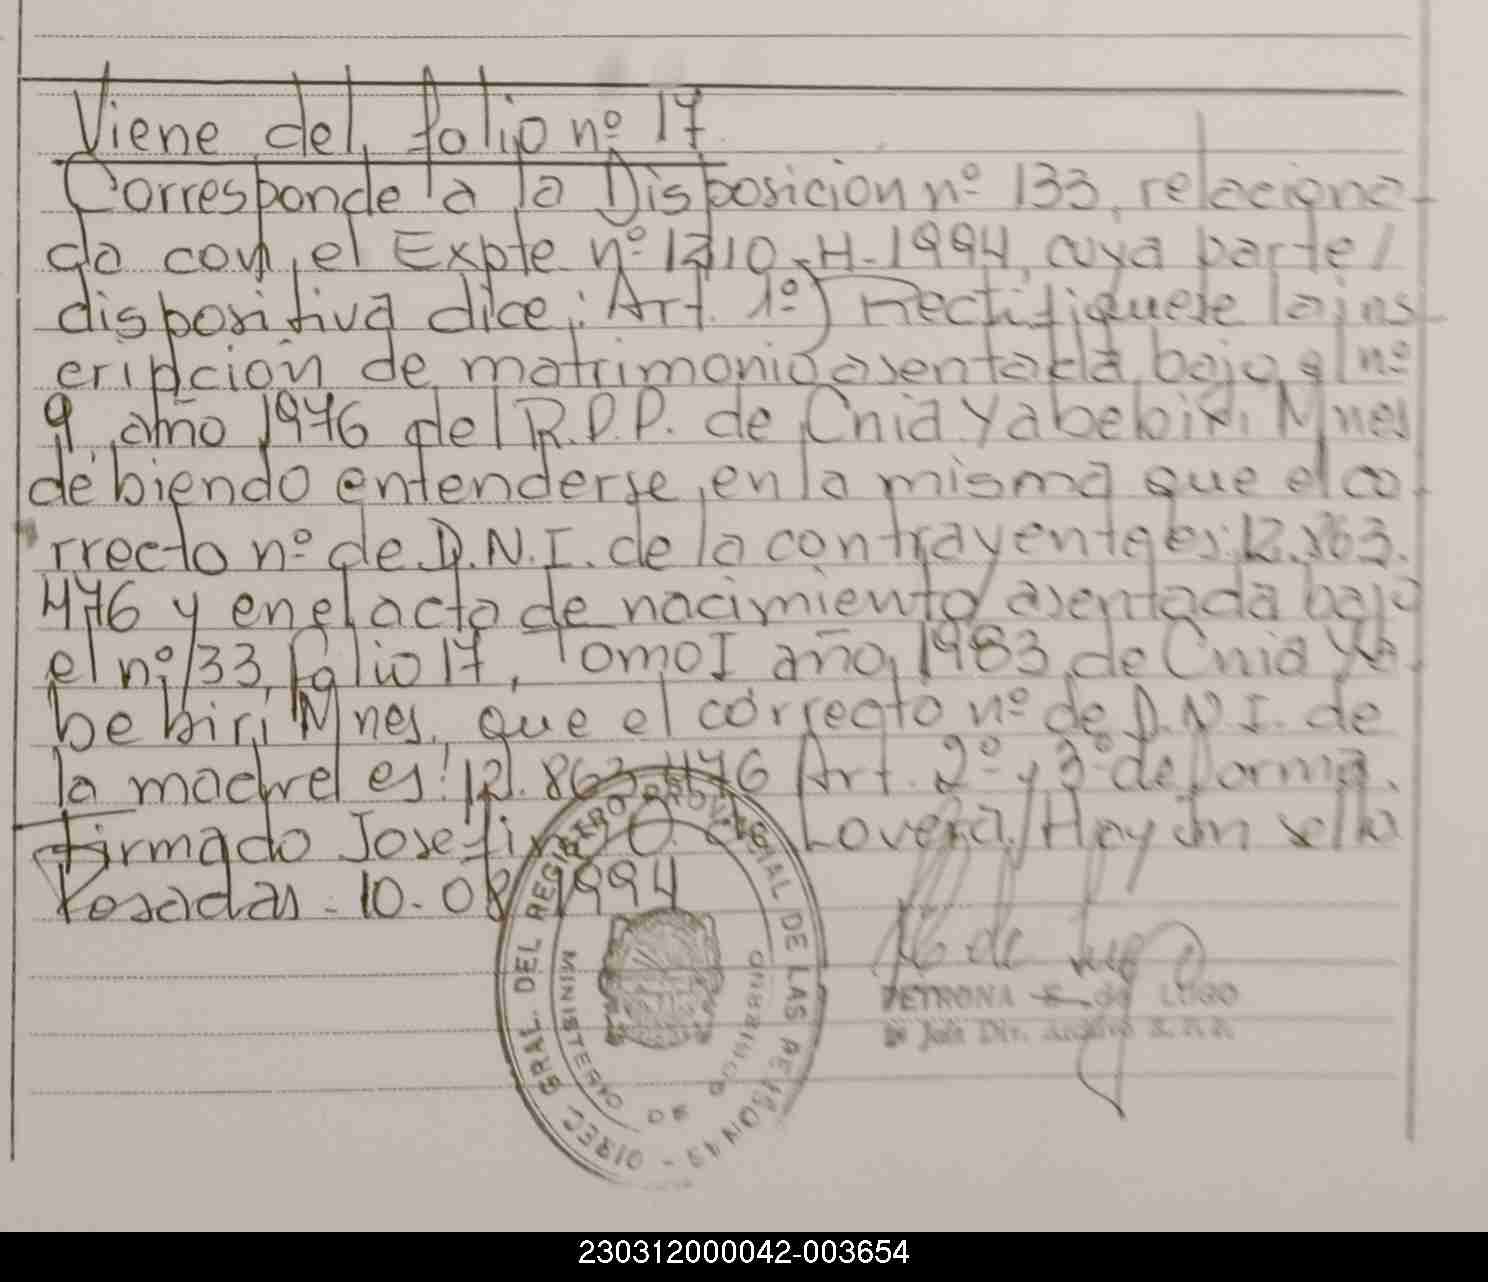 Viene del folio nº 17
Corresponde a la Disposicion nº 133, relaciona-
da con el Expte nº 1310-H-1994, cuya parte
dispositiva dice: Art. 1º) Rectifiquese la ins-
cripción de matrimonio asentada bajo el nº
9, año 1976 del R.P.P. de Cnia Yabebiri Mnes
debiendo entenderse en la misma que el co-
rrecto nº de D.N.I. de la contrayente es: 12.863.
476 y en el acta de nacimiento asentada bajo
el nº 33, folio 17, Tomo I año 1983 de Cnia Ya-
bebiri Mnes, que el correcto nº de D.N.I. de
la madre es: 12.863.476 Art. 2º y 3º de forma.
Firmado Josefina O. de Lovera. Hay un sello
Posadas - 10-08-1994
DIREC. GRAL. DEL REGISTRO PROVINCIAL DE LAS PERSONAS
MINISTERIO DE GOBIERNO
PETRONA E. de LUGO
Jefa Dir. Archivo R.P.P.
230312000042-003654